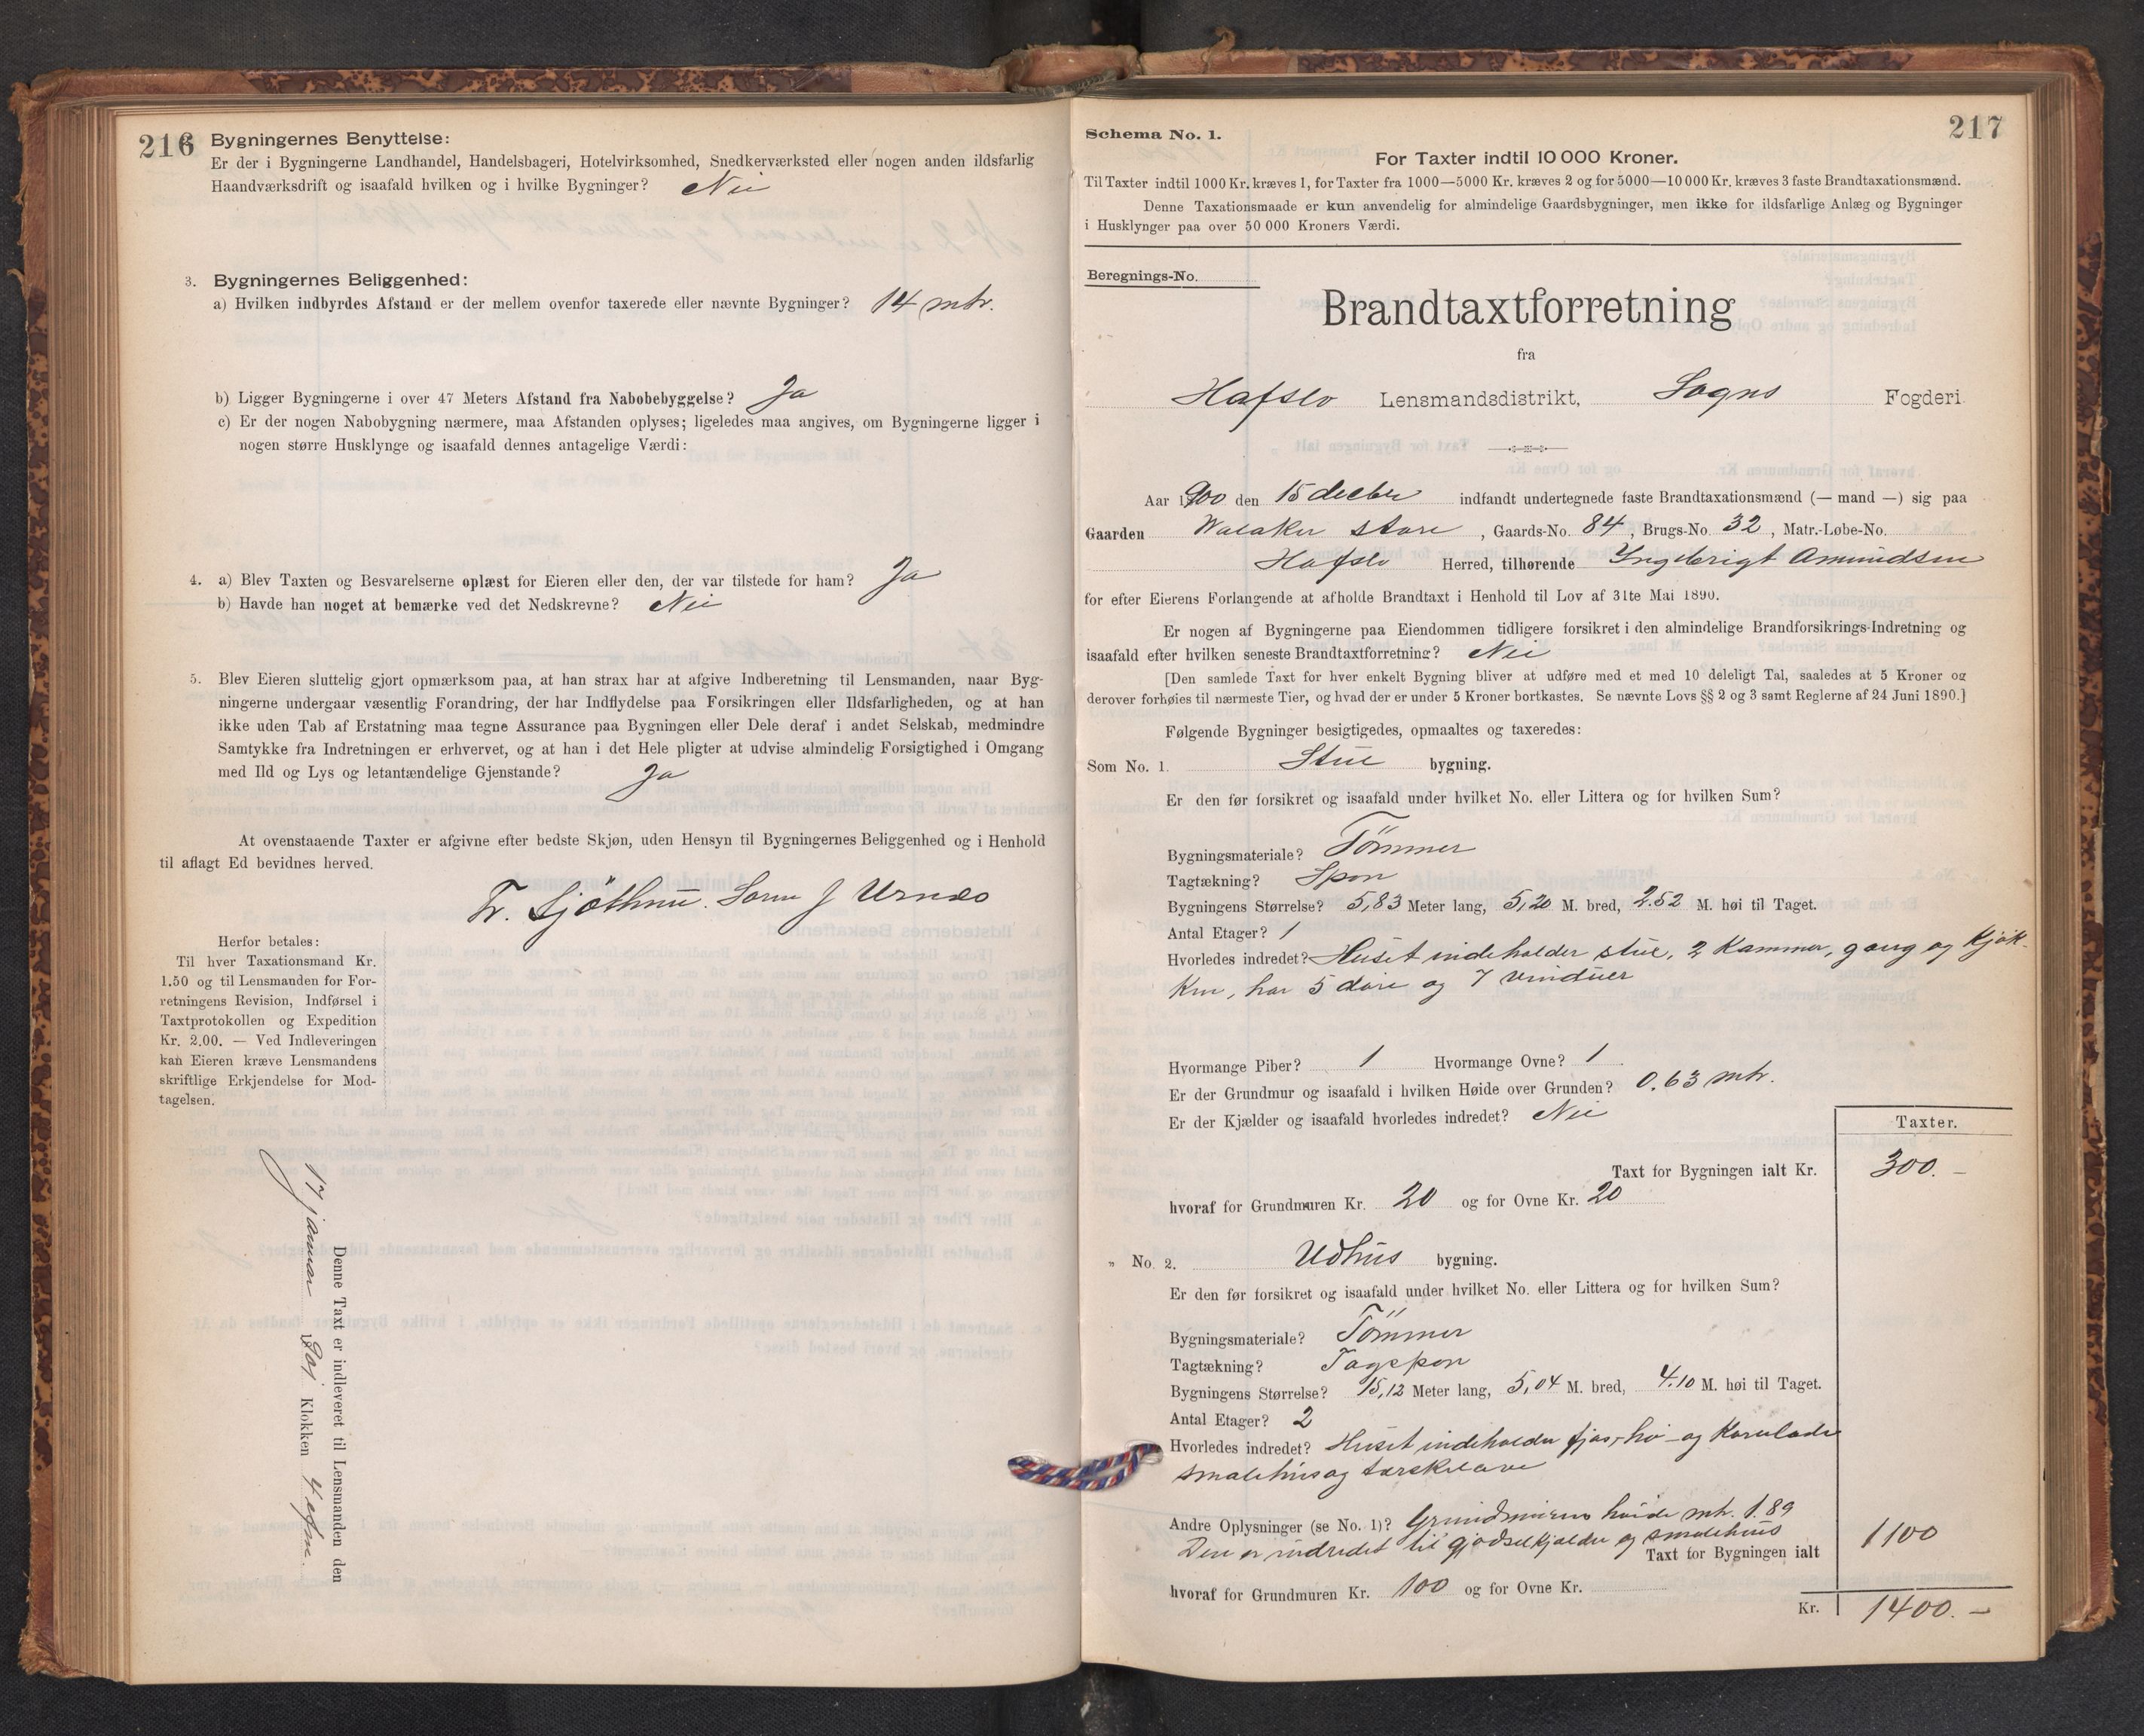 216 Bygningernes Benyttelse:
Er der i Bygningerne Landhandel, Handelsbageri, Hotelvirksomhed, Snedkerværksted eller nogen anden ildsfarlig
Haandværksdrift og isaafald hvilken og i hvilke Bygninger? Nei
3. Bygningernes Beliggenhed:
a) Hvilken indbyrdes Afstand er der mellem ovenfor taxerede eller nævnte Bygninger? 14 mtr.
b) Ligger Bygningerne i over 47 Meters Afstand fra Nabobebyggelse? Ja
c) Er der nogen Nabobygning nærmere, maa Afstanden oplyses; ligeledes maa angives, om Bygningerne ligger i
nogen større Husklynge og isaafald dennes antagelige Værdi:
4. a) Blev Taxten og Besvarelserne oplæst for Eieren eller den, der var tilstede for ham? Ja
b) Havde han noget at bemærke ved det Nedskrevne? Nei
5. Blev Eieren sluttelig gjort opmærksom paa, at han strax har at afgive Indberetning til Lensmanden, naar Byg-
ningerne undergaar væsentlig Forandring, der har Indflydelse paa Forsikringen eller Ildsfarligheden, og at han
ikke uden Tab af Erstatning maa tegne Assurance paa Bygningen eller Dele deraf i andet Selskab, medmindre
Samtykke fra Indretningen er erhvervet, og at han i det Hele pligter at udvise almindelig Forsigtighed i Omgang
med Ild og Lys og letantændelige Gjenstande? Ja
At ovenstaaende Taxter er afgivne efter bedste Skjøn, uden Hensyn til Bygningernes Beliggenhed og i Henhold
til aflagt Ed bevidnes herved.
J Urnes
Herfor betales:
Til hver Taxationsmand Kr.
1.50 og til Lensmanden for For-
retningens Revision, Indførsel i
Taxtprotokollen og Expedition
Kr. 2.00. — Ved Indleveringen
kan Eieren kræve Lensmandens
skriftlige Erkjendelse for Mod-
tagelsen.
Denne Taxt er indleveret til Lensmanden den
17 januar 1901 Klokken 4 efm.
217
Schema No. 1.
For Taxter indtil 10 000 Kroner.
Til Taxter indtil 1000 Kr. kræves 1, for Taxter fra 1000—5000 Kr. kræves 2 og for 5000—10 000 Kr. kræves 3 faste Brandtaxationsmænd.
Denne Taxationsmaade er kun anvendelig for almindelige Gaardsbygninger, men ikke for ildsfarlige Anlæg og Bygninger
i Husklynger paa over 50 000 Kroners Værdi.
Beregnings-No.
Brandtaxtforretning
fra
Hafslo Lensmandsdistrikt, Sogns Fogderi
Aar 1900 den 15 decbr indfandt undertegnede faste Brandtaxationsmænd (— mand —) sig paa
Gaarden Walaker store, Gaards-No. 84, Brugs-No. 32, Matr.-Løbe-No.
Hafslo Herred, tilhørende Ingebrigt Amundsen
for efter Eierens Forlangende at afholde Brandtaxt i Henhold til Lov af 31te Mai 1890.
Er nogen af Bygningerne paa Eiendommen tidligere forsikret i den almindelige Brandforsikrings-Indretning og
isaafald efter hvilken seneste Brandtaxtforretning? Nei
[Den samlede Taxt for hver enkelt Bygning bliver at udføre med et med 10 deleligt Tal, saaledes at 5 Kroner og
derover forhøies til nærmeste Tier, og hvad der er under 5 Kroner bortkastes. Se nævnte Lovs §§ 2 og 3 samt Reglerne af 24 Juni 1890.]
Følgende Bygninger besigtigedes, opmaaltes og taxeredes:
Som No. 1. Stue bygning.
Er den før forsikret og isaafald under hvilket No. eller Littera og for hvilken Sum?
Bygningsmateriale? Tömmer
Tagtækning? Spon
Bygningens Størrelse? 5,83 Meter lang, 5,20 M. bred, 2.52 M. høi til Taget.
Antal Etager? 1
Hvorledes indredet? Huset indeholder stue, 2 Kammer, gang og Kjøk-
ken, har 5 døre og 7 vinduer
Hvormange Piber? 1 Hvormange Ovne? 1
Er der Grundmur og isaafald i hvilken Høide over Grunden? 0.63 mtr.
Er der Kjælder og isaafald hvorledes indredet? Nei
Taxter.
Taxt for Bygningen ialt Kr. 300.—
hvoraf for Grundmuren Kr. 20 og for Ovne Kr. 20
" No. 2. Udhus bygning.
Er den før forsikret og isaafald under hvilket No. eller Littera og for hvilken Sum?
Bygningsmateriale? Tömmer
Tagtækning? Tagspon
Bygningens Størrelse? 15,12 Meter lang, 5,04 M. bred, 4.10 M. høi til Taget.
Antal Etager? 2
Hvorledes indredet? Huset indeholder fjøs, hø- og Kornlade
smalehus og tærskelave
Andre Oplysninger (se No. 1)? Grundmurens høide mtr. 1.89
Den er indredet til gjødselkjælder og smalehus
Taxt for Bygningen ialt 1100
hvoraf for Grundmuren Kr. 100 og for Ovne Kr.
Kr. 1400.—